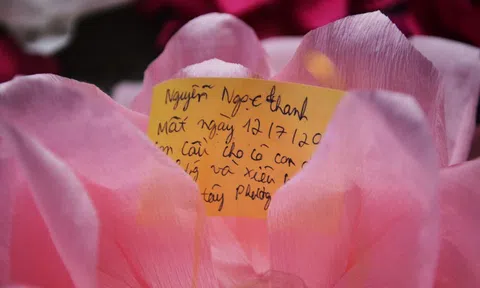 Nguyễn Ngọc Thanh
Mất ngày 12/7/20
cầu cho cô con
và xiên
tây Phương